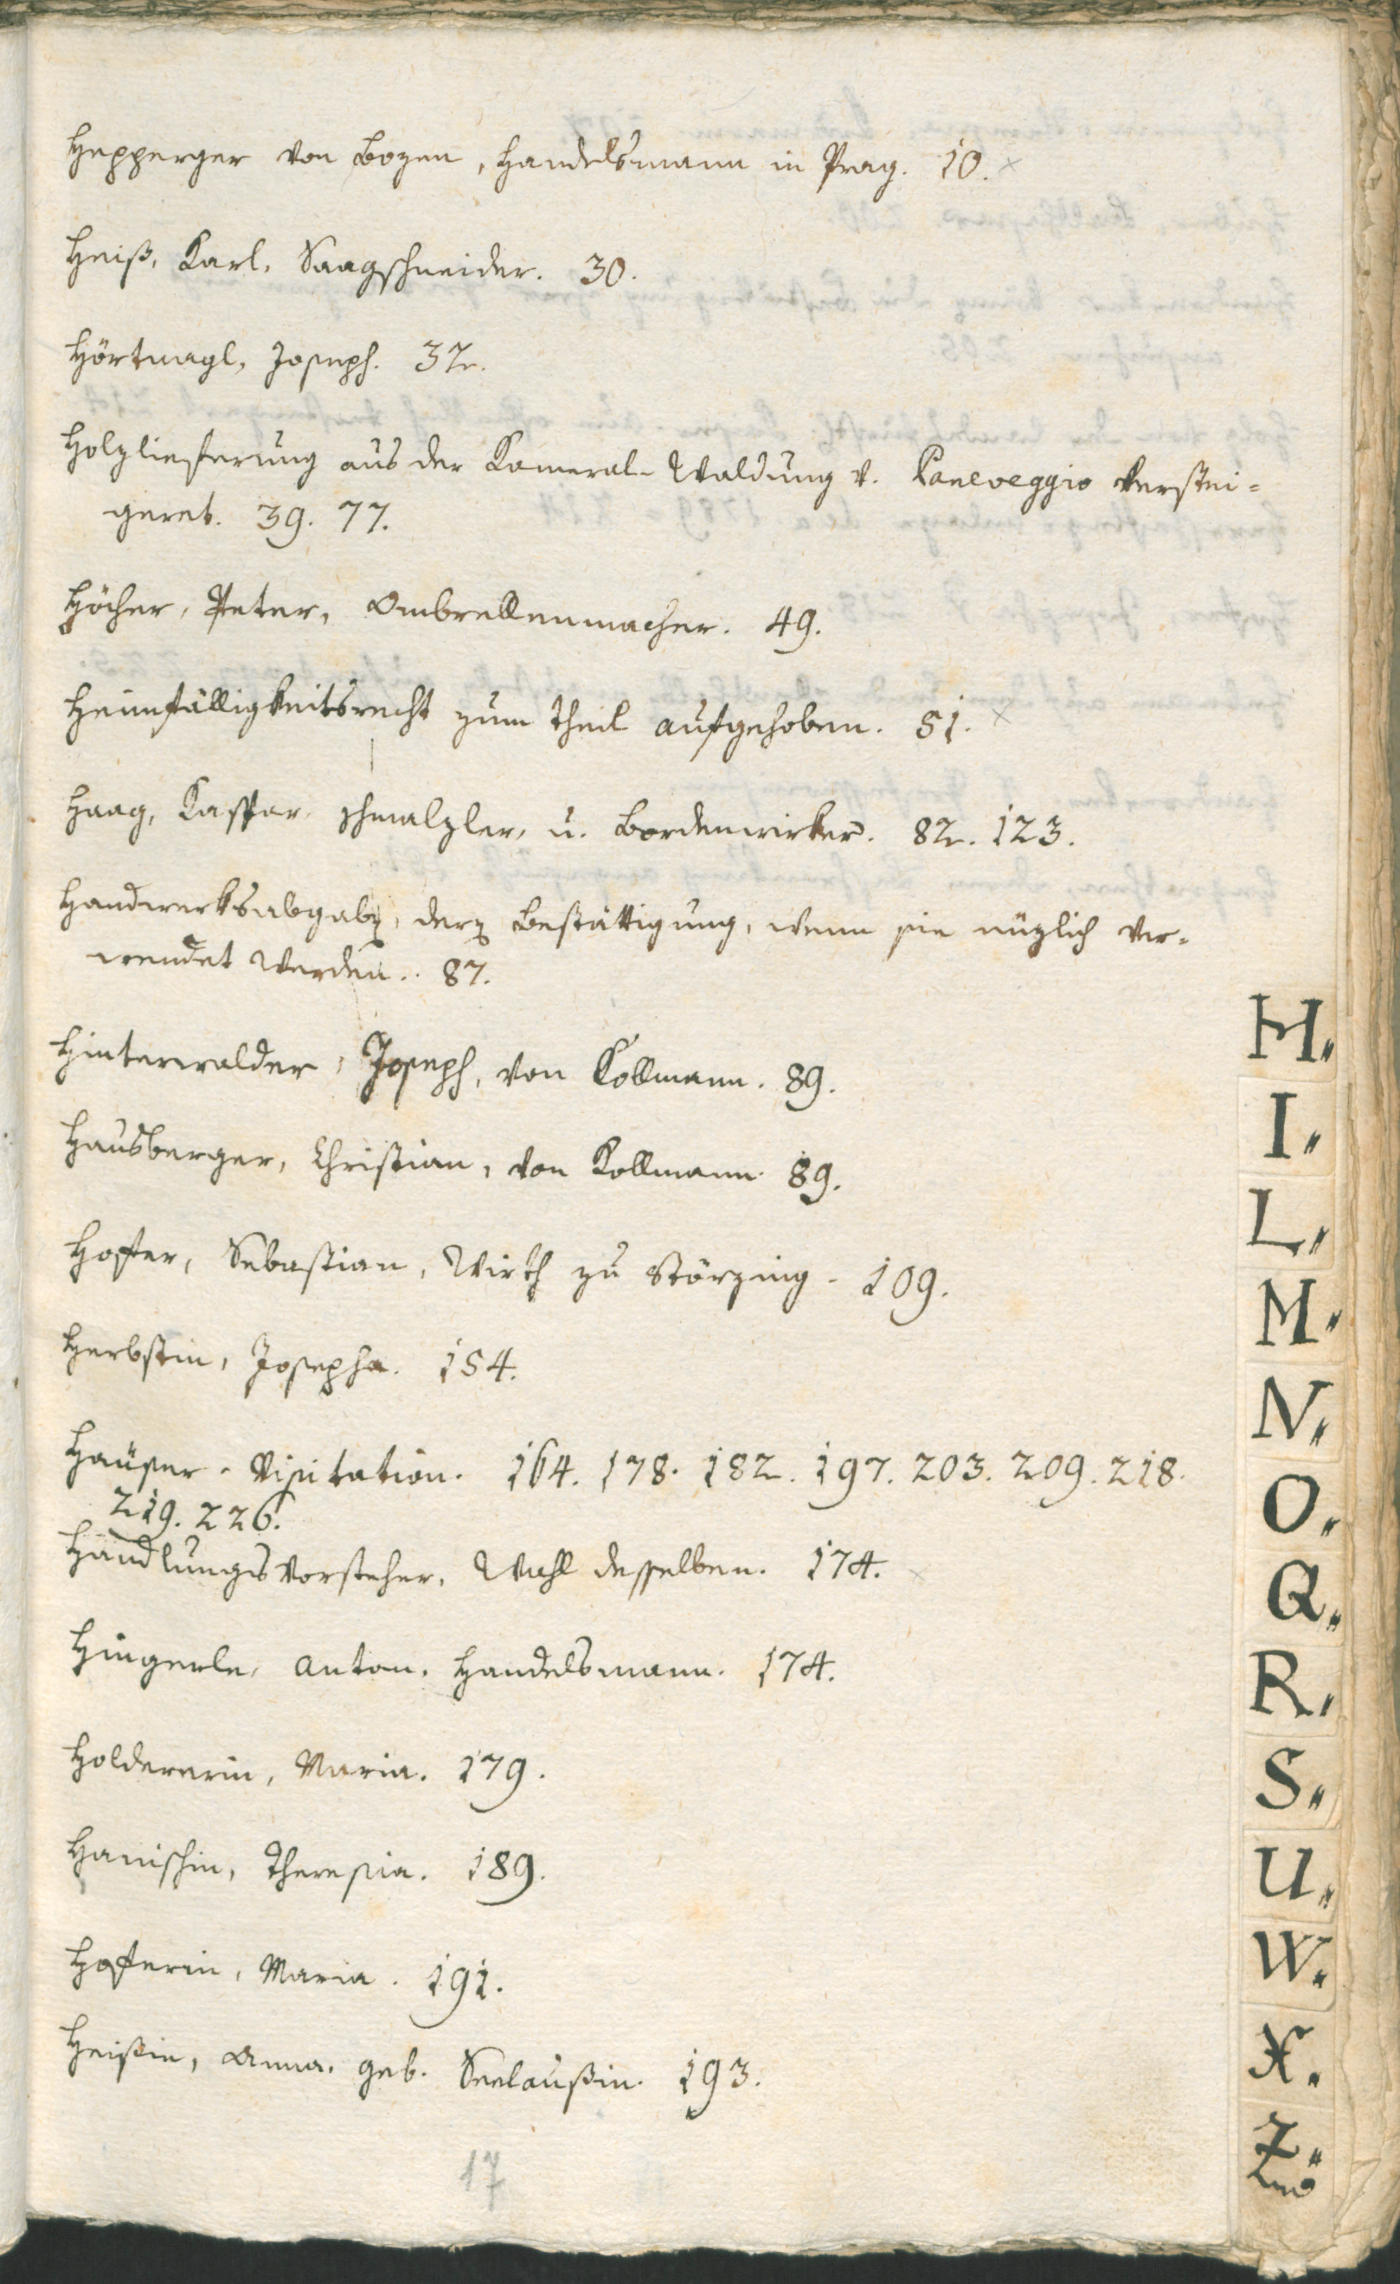 Hepperger von Bozen, Handelsmann in Prag. 10. ×
Heiß, Karl, Saagschneider. 30.
Hörtnagl, Joseph. 32.
Holzlieferung aus der Kameral-Waldung v. Paneveggio verstei=
geret. 39. 77.
Höcher, Peter, Ombrellenmacher. 49.
Heimfälligkeitsrecht zum Theil aufgehoben. 51. ×
Haag, Kaspar, Schmalzler, u. Bordenwirker. 82. 123.
Handwerksabgabe, derer Bestättigung, wenn sie nüzlich ver=
wendet werden. 87.
Hinterwalder, Joseph, von Kollmann. 89.
Hausberger, Christian, von Kollmann. 89.
Hofer, Sebastian, Wirth zu Störzing. 109.
Herbstin, Josepha. 154.
Häuser-Visitation. 164. 178. 182. 197. 203. 209. 218.
219. 226.
Handlungsvorsteher, Wahl desselben. 174. ×
Hingerle, Anton, Handelsmann. 174.
Holdererin, Maria. 179.
Hanischin, Theresia. 189.
Hoferin, Maria. 191.
Heißin, Anna, geb. Seelaußin. 193.
17
H.
I.
L.
M.
N.
O.
Q.
R.
S.
U.
W.
X.
Z.